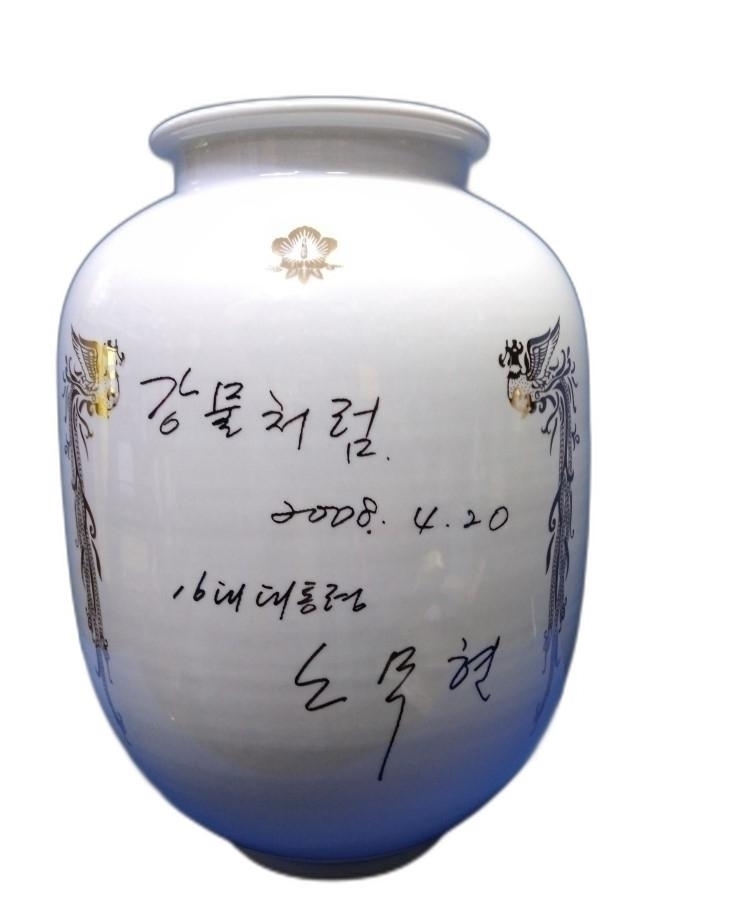 강물처럼.
2008. 4. 20
16대 대통령
노무현